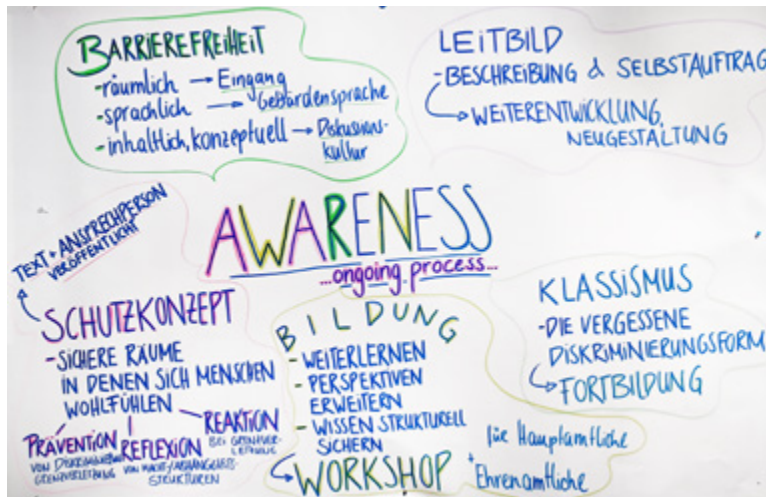 BARRIEREFREIHEIT
-räumlich → Eingang
-sprachlich → Gebärdensprache
-inhaltlich, konzeptuell → Diskussions-
kultur
LEITBILD
-BESCHREIBUNG & SELBSTAUFTRAG
→ WEITERENTWICKLUNG,
NEUGESTALTUNG
AWARENESS
...ongoing process...
TEXT + ANSPRECHPERSON
VERÖFFENTLICHT
SCHUTZKONZEPT
-SICHERE RÄUME
IN DENEN SICH MENSCHEN
WOHLFÜHLEN
PRÄVENTION
VON DISKRIMINIERUNG
GRENZVERLETZUNG
REFLEXION
VON MACHT-/ABHÄNGIGKEITS-
STRUKTUREN
REAKTION
BEI GRENZVER-
LETZUNG
BILDUNG
- WEITERLERNEN
- PERSPEKTIVEN
ERWEITERN
- WISSEN STRUKTURELL
SICHERN
→ WORKSHOP
für Hauptamtliche
+ Ehrenamtliche
KLASSISMUS
-DIE VERGESSENE
DISKRIMINIERUNGSFORM
→ FORTBILDUNG